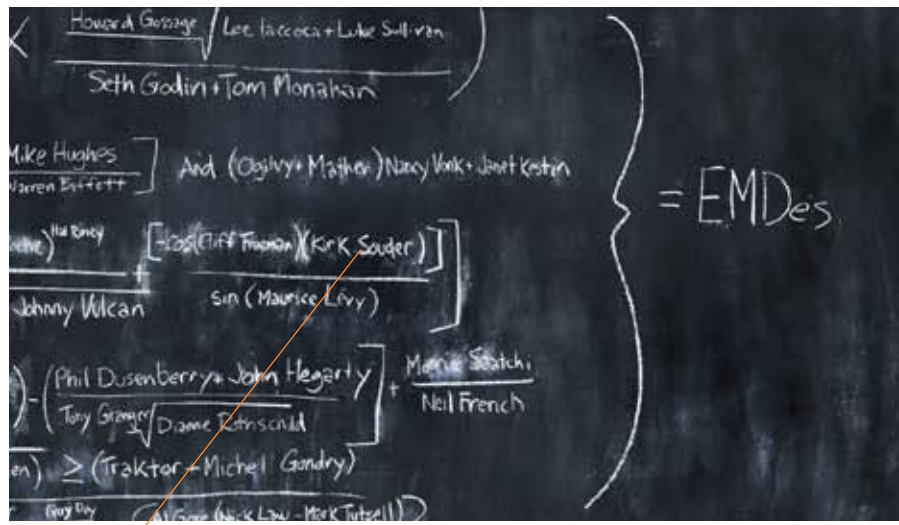 Howard Gossage √ Lee Iaccoca + Luke Sullivan
Seth Godin + Tom Monahan
Mike Hughes
Warren Buffett
And (Ogilvy + Mather) Nancy Vonk + Janet Kestin
= EMDes.
Hal Riney
[-cos(Cliff Freeman)(Kirk Souder)]
Johnny Vulcan
sin (Maurice Lévy)
(Phil Dusenberry + John Hegarty
Tony Granger √ Diane Rothschild
+
Neil French
≥ (Traktor + Michel Gondry)
Guy Day
Al Gore (Nick Law - Mark Tutsell)